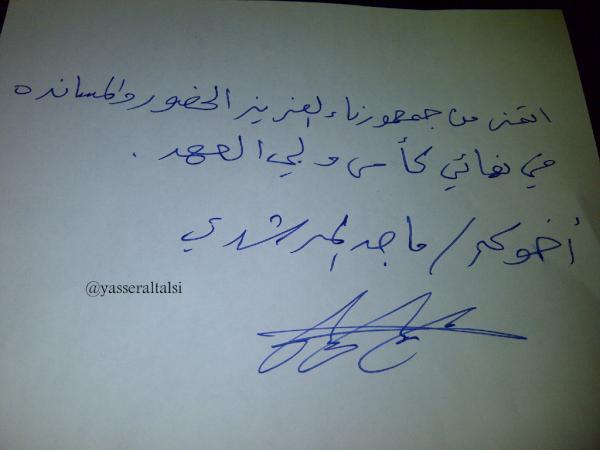 اتمنى من جمهورناء العزيز الحضور والمسانده
في نهائي كأس ولي العهد .
أخوكم / ماجد المرشدي
@yasseraltalsi